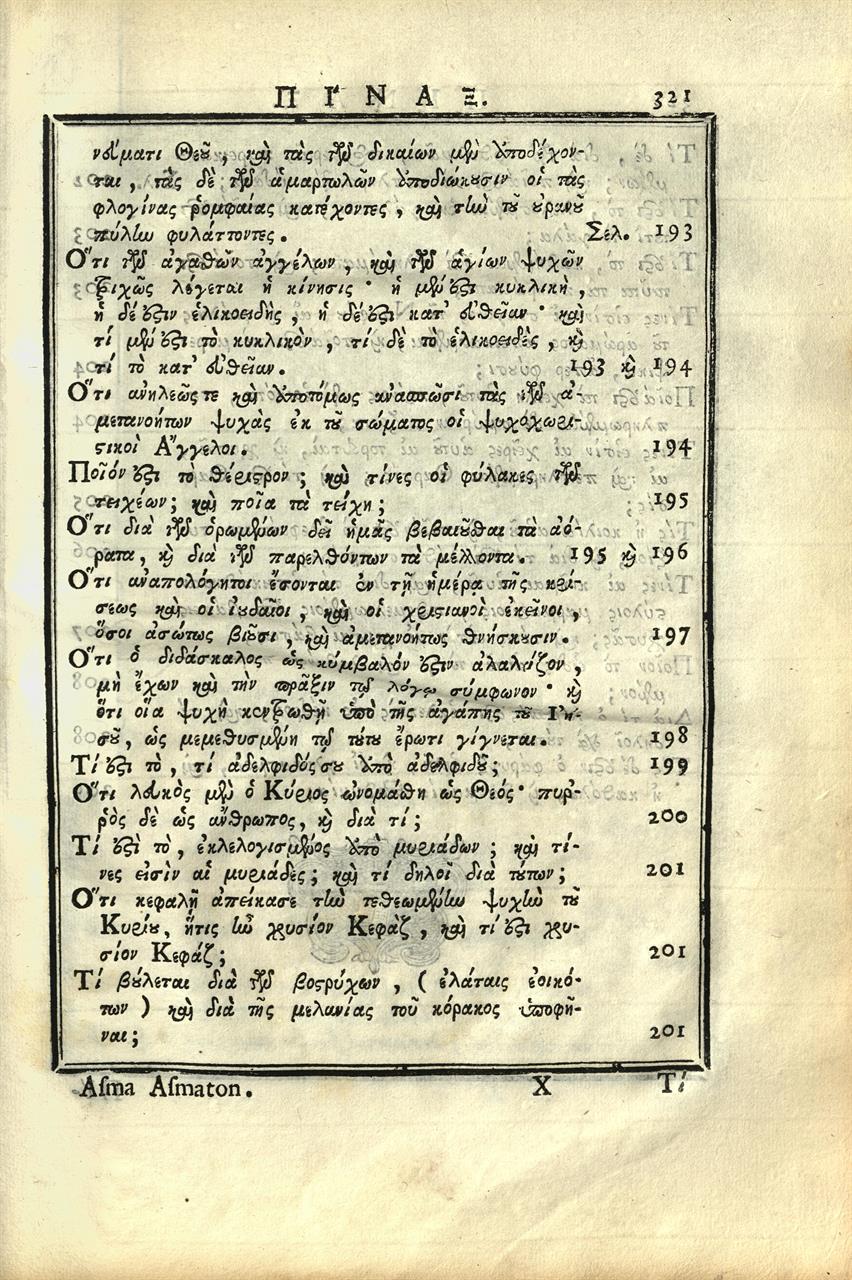 ΠΙΝΑΞ. 321
νεύματι Θεοῦ, καὶ τὰς τῶν δικαίων μὲν ὑποδέχον-
ται, τὰς δὲ τῶν ἁμαρτωλῶν ὑποδιώκουσιν οἱ τὰς
φλογίνας ῥομφαίας κατέχοντες, καὶ τὴν τοῦ οὐρανοῦ
πύλην φυλάττοντες. Σελ. 193
Ὅτι τῶν ἀγαθῶν ἀγγέλων, καὶ τῶν ἁγίων ψυχῶν
τριχῶς λέγεται ἡ κίνησις· ἡ μὲν ἐστι κυκλικὴ,
ἡ δέ ἐστιν ἑλικοειδὴς, ἡ δέ ἐστι κατ' εὐθεῖαν· καὶ
τί μὲν ἐστι τὸ κυκλικὸν, τί δὲ τὸ ἑλικοειδὲς, καὶ
τί τὸ κατ' εὐθεῖαν. 193 καὶ 194
Ὅτι ἀνηλεῶς τε καὶ ἀποτόμως ἀνασπῶσι τὰς τῶν ἀ-
μετανοήτων ψυχὰς ἐκ τοῦ σώματος οἱ ψυχοχωρι-
στικοὶ Ἄγγελοι. 194
Ποῖόν ἐστι τὸ θέριστρον; καὶ τίνες οἱ φύλακες τῶν
τειχέων; καὶ ποῖα τὰ τείχη; 195
Ὅτι διὰ τῶν ὁρωμένων δεῖ ἡμᾶς βεβαιοῦσθαι τὰ ἀό-
ρατα, καὶ διὰ τῶν παρελθόντων τὰ μέλλοντα. 195 καὶ 196
Ὅτι ἀναπολόγητοι ἔσονται ἐν τῇ ἡμέρᾳ τῆς κρί-
σεως καὶ οἱ ἰουδαῖοι, καὶ οἱ χριστιανοὶ ἐκεῖνοι,
ὅσοι ἀσώτως βιοῦσι, καὶ ἀμετανοήτως θνήσκουσιν. 197
Ὅτι ὁ διδάσκαλος ὡς κύμβαλόν ἐστιν ἀλαλάζον,
μὴ ἔχων καὶ τὴν πρᾶξιν τῷ λόγῳ σύμφωνον· καὶ
ὅτι οἵα ψυχὴ κεντρωθῇ ὑπὸ τῆς ἀγάπης τοῦ Ἰη-
σοῦ, ὡς μεμεθυσμένη τῷ τούτου ἔρωτι γίγνεται. 198
Τί ἐστι τὸ, τί ἀδελφιδός σου ἀπὸ ἀδελφιδοῦ; 199
Ὅτι λευκὸς μὲν ὁ Κύριος ὠνομάσθη ὡς Θεός· πυρ-
ῥὸς δὲ ὡς ἄνθρωπος, καὶ διὰ τί; 200
Τί ἐστὶ τὸ, ἐκλελογισμένος ἀπὸ μυριάδων; καὶ τί-
νες εἰσὶν αἱ μυριάδες; καὶ τί δηλοῖ διὰ τούτων; 201
Ὅτι κεφαλῇ ἀπείκασε τὴν τεθεωμένην ψυχὴν τοῦ
Κυρίου, ἥτις ἦν χρυσίον Κεφὰζ, καὶ τί ἐστι χρυ-
σίον Κεφάζ; 201
Τί βούλεται διὰ τῶν βοστρύχων, (ἐλάταις ἐοικό-
των) καὶ διὰ τῆς μελανίας τοῦ κόρακος ὑποφῆ-
ναι; 201
Asma Asmaton. X Τί